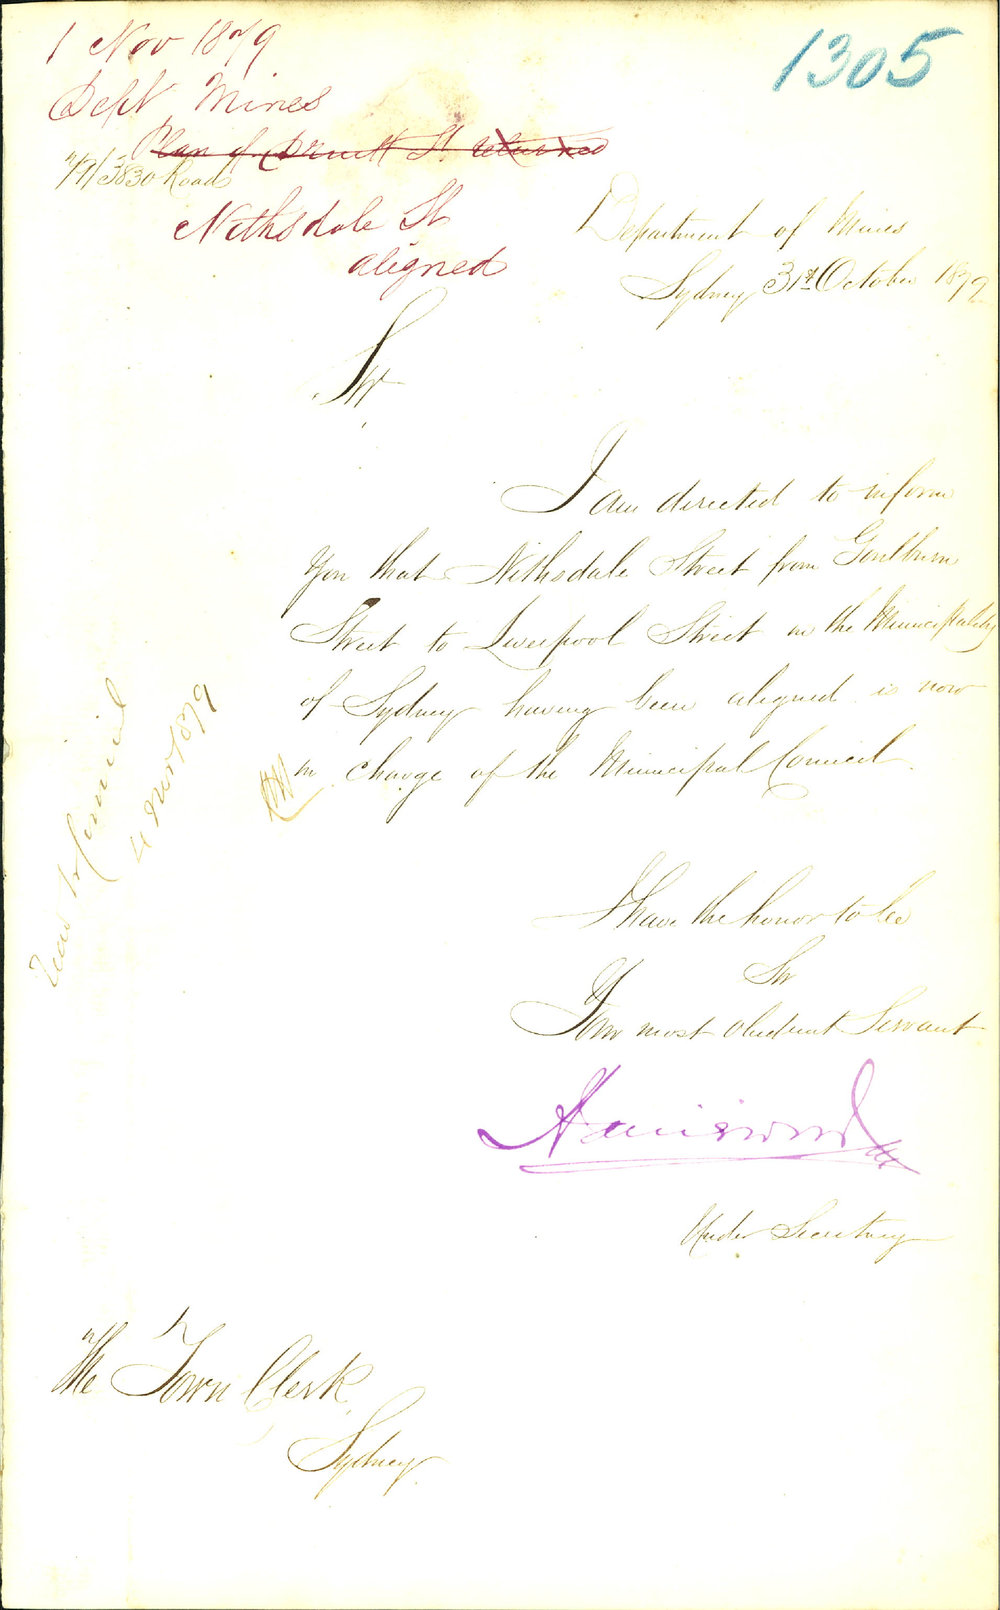 1 Nov 1879
1305
Dept Mines
Plan of Druitt St returned
79/3830 Roads
Nithsdale St
aligned
Department of Mines
Sydney 31st October 1879
Sir
I am directed to inform
you that Nithsdale Street from Goulburn
Street to Liverpool Street in the Municipality
of Sydney having been aligned is now
in charge of the Municipal Council.
Read in Council
4 Nov 1879
I have the honor to be
Sir
Your most obedient Servant
Under Secretary
The Town Clerk
Sydney